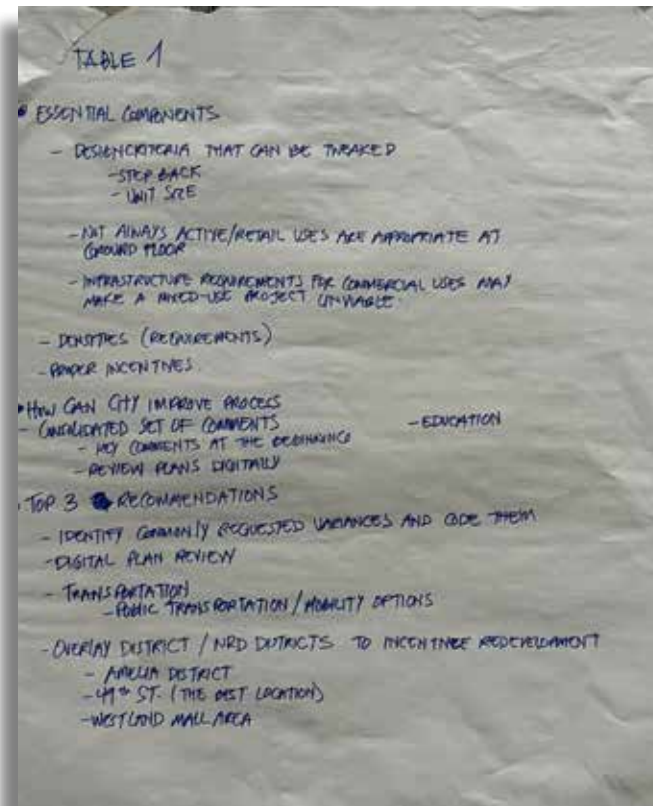 TABLE 1
• ESSENTIAL COMPONENTS
- DESIGN CRITERIA THAT CAN BE TWEAKED
- STEP BACK
- UNIT SIZE
- NOT ALWAYS ACTIVE/RETAIL USES ARE APPROPRIATE AT
GROUND FLOOR
- INFRASTRUCTURE REQUIREMENTS FOR COMMERCIAL USES MAY
MAKE A MIXED-USE PROJECT UNVIABLE.
- DENSITIES (REQUIREMENTS)
- PROPER INCENTIVES
• HOW CAN CITY IMPROVE PROCESS
- CONSOLIDATED SET OF COMMENTS - EDUCATION
- KEY COMMENTS AT THE BEGINNING
- REVIEW PLANS DIGITALLY
• TOP 3 RECOMMENDATIONS
- IDENTIFY COMMONLY REQUESTED VARIANCES AND CODE THEM
- DIGITAL PLAN REVIEW
- TRANSPORTATION
- PUBLIC TRANSPORTATION / MOBILITY OPTIONS
- OVERLAY DISTRICT / NRD DISTRICTS TO INCENTIVE REDEVELOPMENT
- AMELIA DISTRICT
- 49th ST. (THE BEST LOCATION)
- WESTLAND MALL AREA